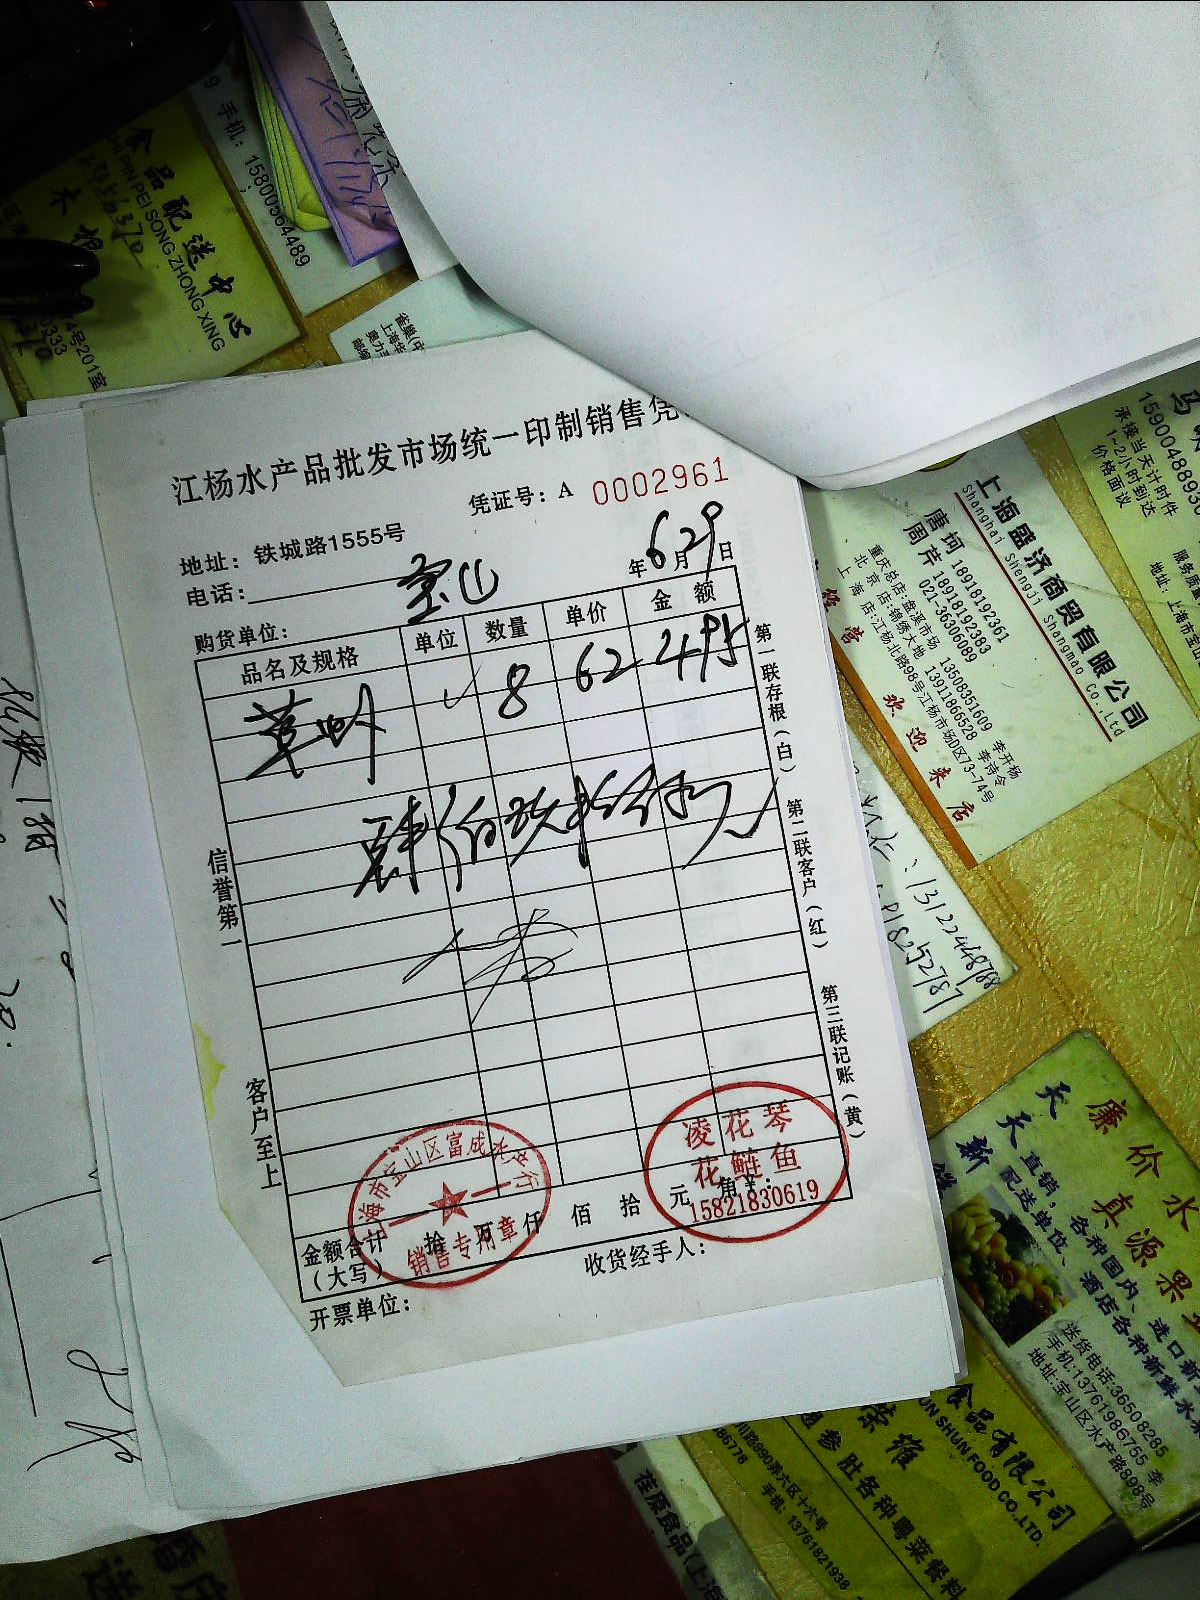 手机：15800364489
食品配送中心
SHI PIN PEI SONG ZHONG XING
江杨水产品批发市场统一印制销售凭
凭证号：A 0002961
地址：铁城路1555号
电话：
宝山
年6月29日
购货单位：
品名及规格 单位 数量 单价 金额
8 62 495
肆佰玖拾伍元
信誉第一
客户至上
第一联存根（白）
第二联客户（红）
第三联记账（黄）
上海市宝山区富成水产行
销售专用章
凌花琴
花鲢鱼
15821830619
金额合计（大写） 拾 万 仟 佰 拾 元 角 ¥：
开票单位：
收货经手人：
上海盛济商贸有限公司
Shanghai Shengji Shangmao Co.,Ltd
唐坷 18918192361
周芹 18918192383
021-36306089
重庆总店：盘溪市场 13508351609 李开杨
北京店：锦绣大地 13911866528 李诗令
上海店：江杨北路98号江杨市场D区73-74号
欢迎来店
15900488930
承接当天计时件
1~2小时到达
价格面议
13122448788
天天新鲜
廉价水
真源果
直销，各种国内、进口新
配送单位、酒店各种新鲜水
送货电话：36508285
手机：13761986755 李
地址：宝山区水产路898号
食品有限公司
UN SHUN FOOD CO.,LTD.
参肚各种粤菜餐料
路990弄六区十六号
手机：13761821938
荏原食品(上海